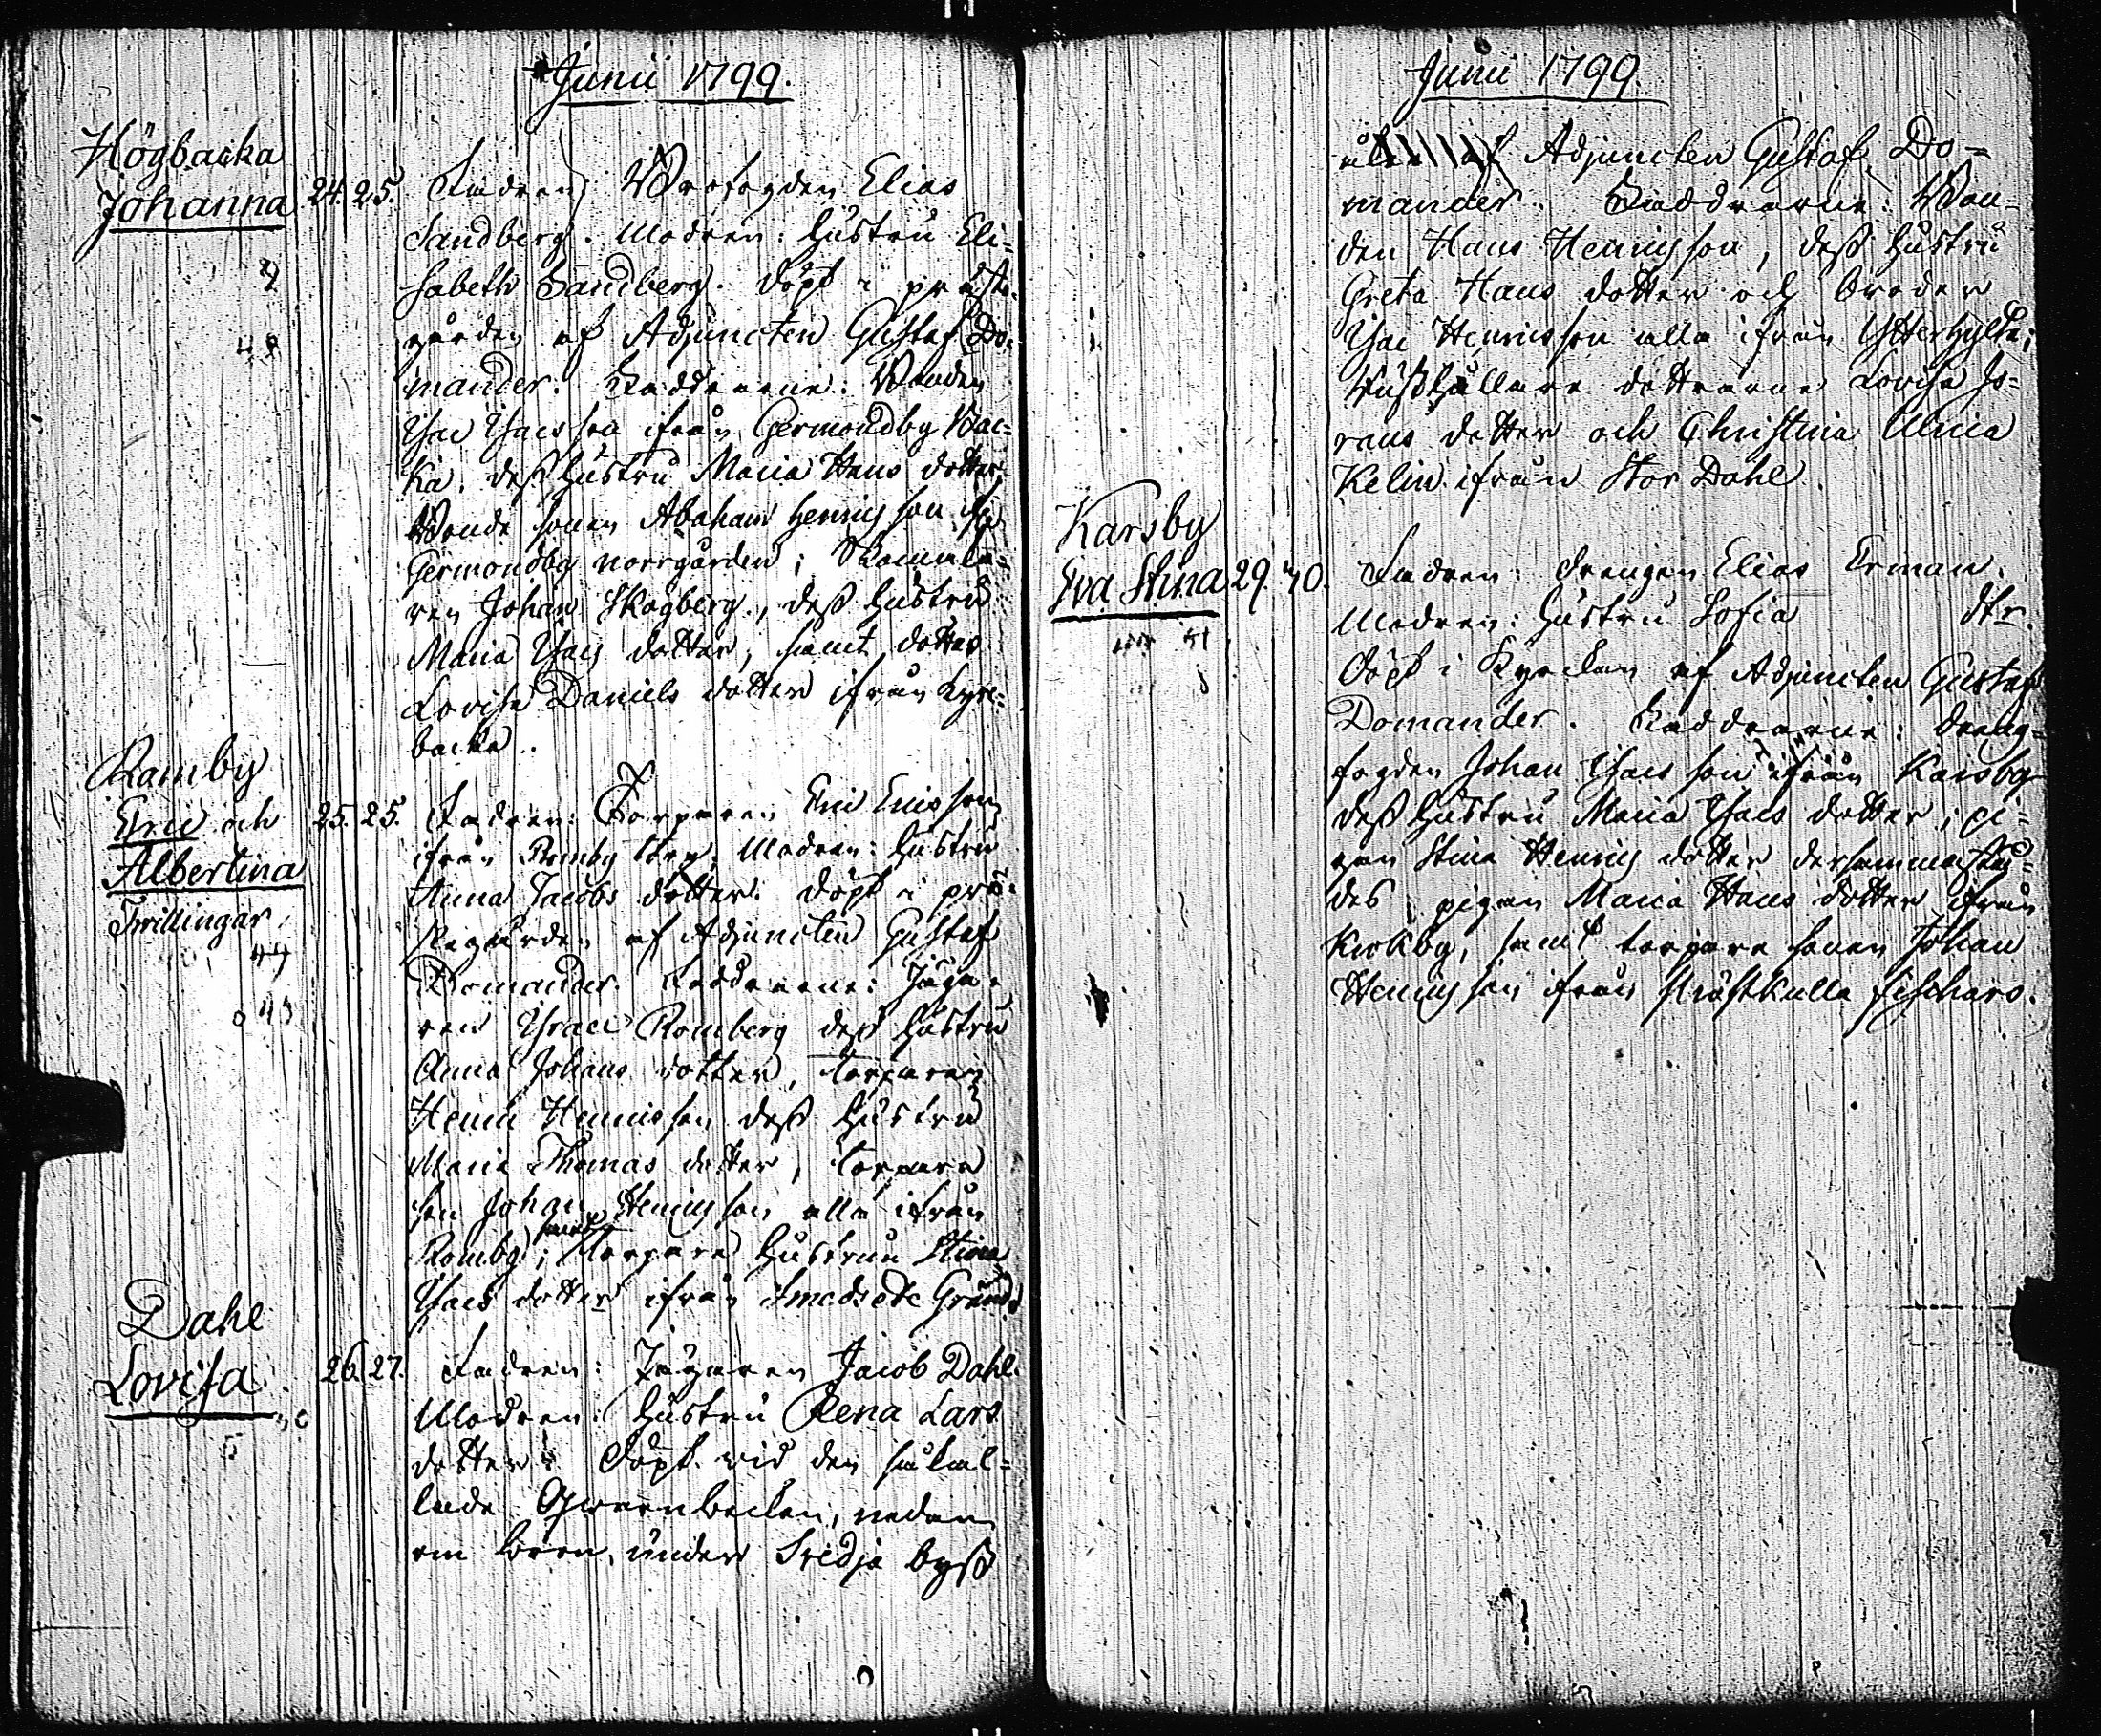 Junii 1799.
Högbacka
Johanna 24. 25. Fadren: Brofogden Elias
Sandberg. Modren: Hustru Eli=
sabeth Sandberg. Döpt i präste-
gården af Adjuncten Gustaf Do=
mander. Faddrarne: Bonden
Isac Isacsson ifrån Germondby Bac=
ka, dess hustru Maria Hans dotter
Bonde sonen Abaham Henrichsson
Germondby norrgården;
ren Johan Skogberg, dess hustru
Maria Isacs dotter, samt dotter
Lovisa Daniels dotter ifrån Kyrc=
backa.
Ramby
Eric och 25. 25. Fadren: Torparen Eric Ericsson
Albertina
Twillingar
ifrån Romby. Modren: Hustru
Anna Jacobs dotter. Döpt i prä=
stegården af Adjuncten Gustaf
Domander. Faddrarne: Jäga=
ren Israel Romberg dess hustru
Anna Johans dotter, torparen
Henric Henricsson dess hustru
Maria Thomas dotter, torpare
son Johan Henricsson alla ifrån
Romby; samt torpare hustrun Stina
Isacs dotter ifrån Smedsede Grund.
Dahl
Lovisa 26. 27. Fadren: Jägaren Jacob Dahl.
Modren: Hustru Lena Lars
dotter. Döpt vid den så kal=
lade Qwarnbacken, nedan
om bron, under Svedja byss
Junii 1799.
Adjuncten Gustaf Do=
mander. Faddrarne: Bon=
den Hans Henricsson, dess hustru
Greta Hans dotter och broder
Isac Henricsson alla ifrån Ytterhylta;
Rusthållare döttrarne Lovisa Jo=
rans dotter och Christina Ulrica
Kelin ifrån Stor Dahl.
Karsby
Eva Stina 29. 30. Fadren: drengen Elias Erman.
Modren: Hustru Sofia dtr.
Döpt i Kyrckan af Adjuncten Gustaf
Domander. Faddrarne: dreng=
fogden Johan Isacsson ifrån Karsby
dess hustru Maria Isacs dotter; pi=
gan Stina Henrics dotter dersammastä=
des, pigan Maria Hans dotter ifrån
Kirkby, samt torpare sonen Johan
Henricsson ifrån Kulla Fischars.